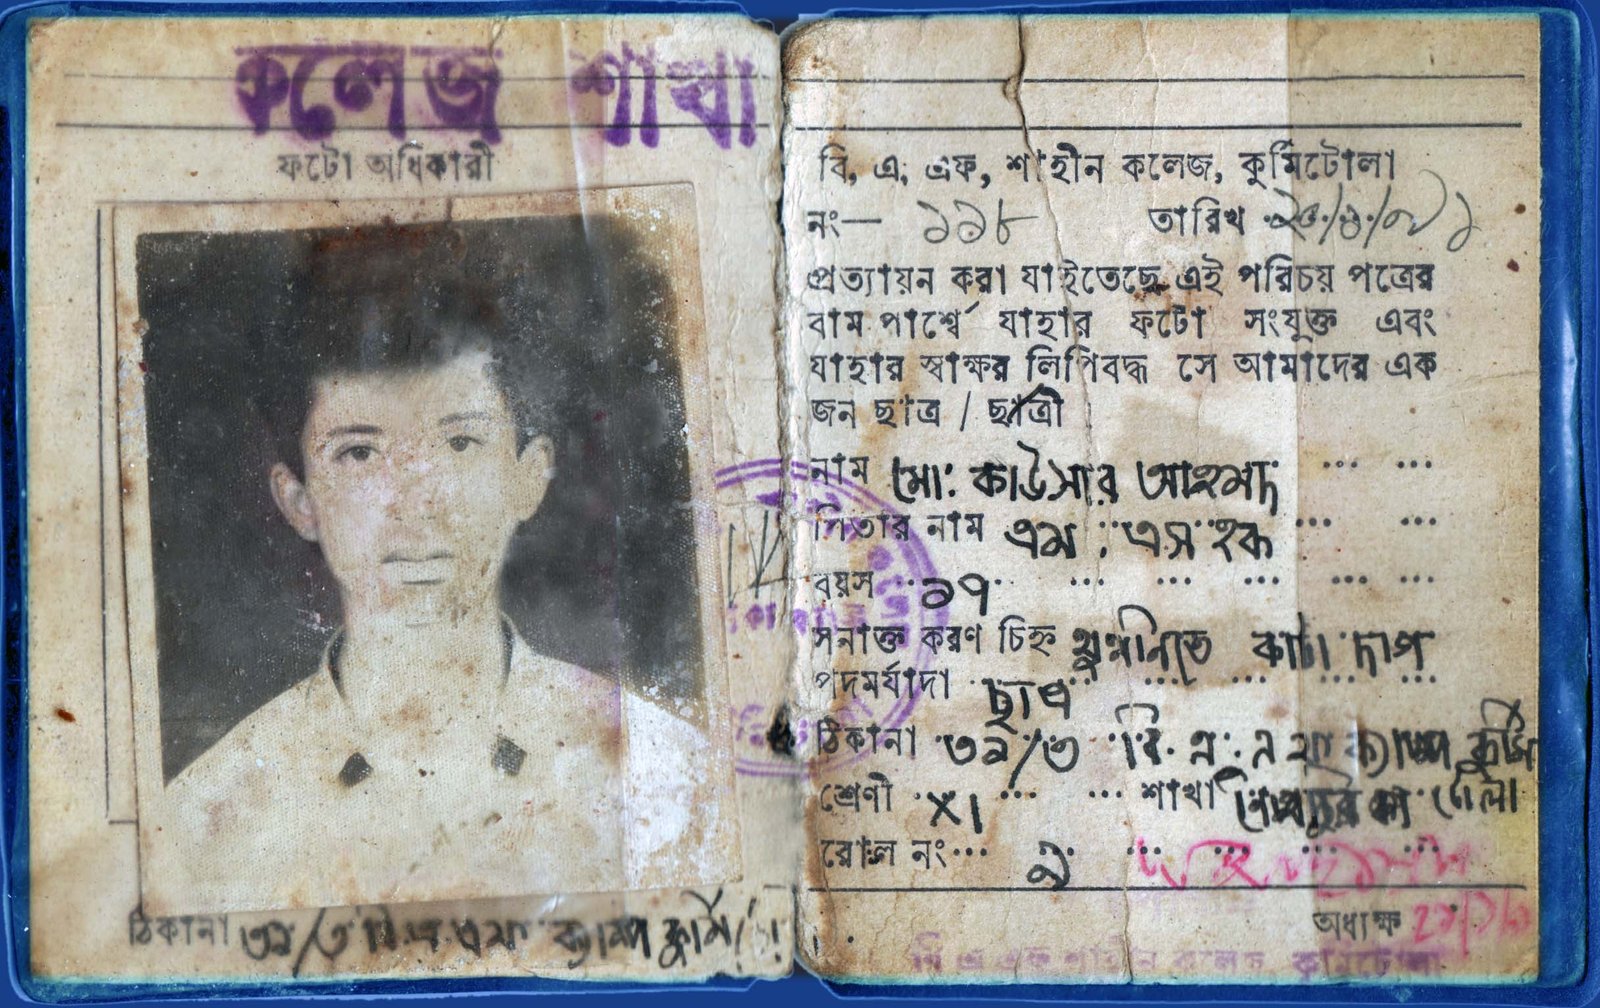 কলেজ শাখা
ফটো অধিকারী
ঠিকানা ৩৯/৩ বি এ এফ ক্যাম্প কুর্মি
বি, এ, এফ, শাহীন কলেজ, কুর্মিটোলা
নং— ১১৮ তারিখ
প্রত্যায়ন করা যাইতেছে এই পরিচয় পত্রের
বাম পার্শ্বে যাহার ফটো সংযুক্ত এবং
যাহার স্বাক্ষর লিপিবদ্ধ সে আমাদের এক
জন ছাত্র / ছাত্রী
নাম মো: কাউসার আহমদ
পিতার নাম এম. এস হক
বয়স ১৭
সনাক্ত করণ চিহ্ন থুথনিতে কাটা দাগ
পদমর্যাদা ছাত্র
ঠিকানা ৩৯/৩ বি. এ. এফ ক্যাম্প কুর্মি
শ্রেণী XI শাখা টোলা
রোল নং ৯
অধ্যক্ষ
বি এ এফ শাহীন কলেজ কুর্মিটোলা